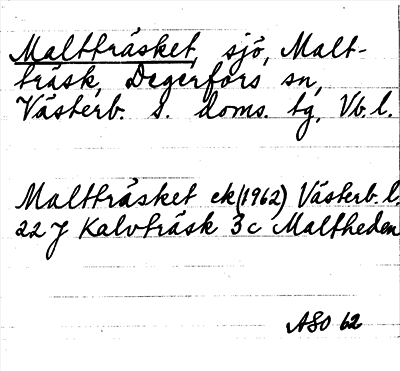 Maltträsket, sjö, Malt-
träsk, Degerfors sn,
Västerb. s. doms. tg, Vb. l.
Maltträsket ek (1962) Västerb. l.
22 J Kalvträsk 3c Maltheden
ASO 62